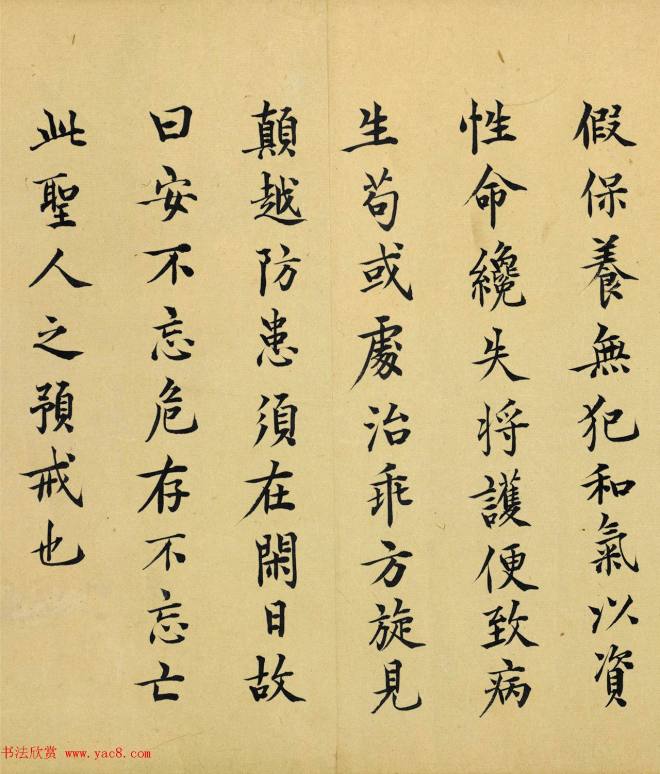 假保養無犯和氣以資
性命纔失將護便致病
生苟或處治乖方旋見
顛越防患須在閑日故
曰安不忘危存不忘亡
此聖人之預戒也
书法欣赏 www.yac8.com